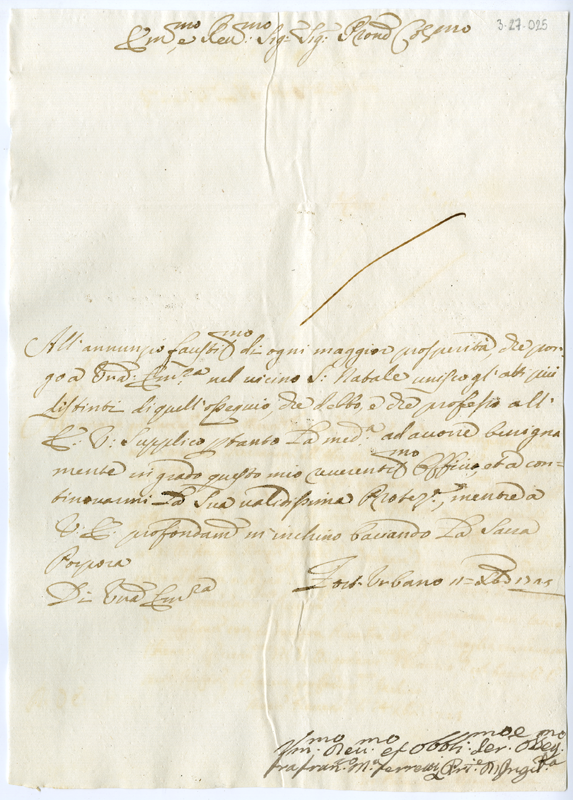 3-27-025
Em.mo e Reu.mo Sig.r Sig.r Pron Col.mo
All'annunzio faustis.mo di ogni maggior prosperità che por-
go a Vrã Em.za nel vicino S. Natale unisco gl'atti più
distinti di quell'ossequio che debbo, e che professo all'
E. V: Supplico ptanto La med.a ad avere benigna
mente in grado questo mio reverentis.mo Offizio, et a con=
tinovarmi La Sua validissima Protez.e, mentre a
V. E. profondam.te m'inchino baciando La Sacra
Porpora
Di Vrã Em.za
Fort Urbano 11
Um.mo Deu.mo et Obbli.mo Ser.e
fra Fran.co M.a Ferretti